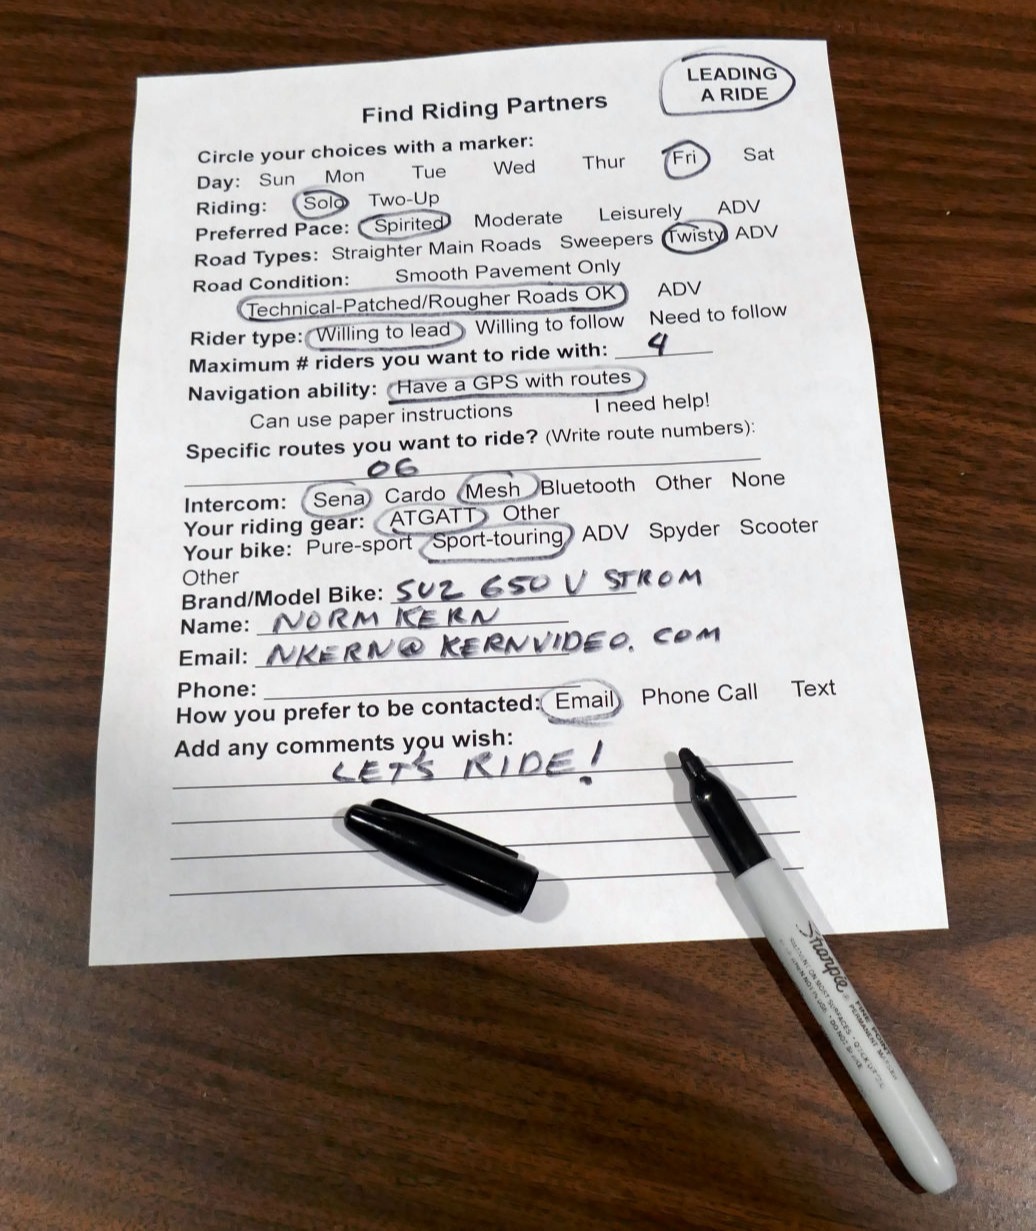 LEADING
A RIDE
Find Riding Partners
Circle your choices with a marker:
Day: Sun Mon Tue Wed Thur Fri Sat
Riding: Solo Two-Up
Preferred Pace: Spirited Moderate Leisurely ADV
Road Types: Straighter Main Roads Sweepers Twisty ADV
Road Condition: Smooth Pavement Only
Technical-Patched/Rougher Roads OK ADV
Rider type: Willing to lead Willing to follow Need to follow
Maximum # riders you want to ride with: 4
Navigation ability: Have a GPS with routes
Can use paper instructions I need help!
Specific routes you want to ride? (Write route numbers):
06
Intercom: Sena Cardo Mesh Bluetooth Other None
Your riding gear: ATGATT Other
Your bike: Pure-sport Sport-touring ADV Spyder Scooter
Other
Brand/Model Bike: SUZ 650 V STROM
Name: NORM KERN
Email: NKERN@KERNVIDEO.COM
Phone:
How you prefer to be contacted: Email Phone Call Text
Add any comments you wish:
LET'S RIDE!
Sharpie
FINE POINT
PERMANENT MARKER